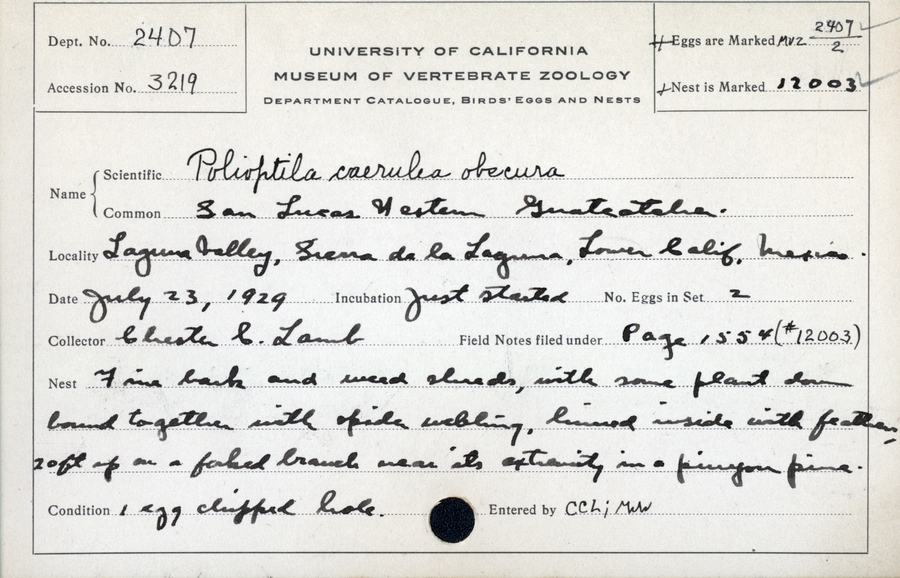 Dept. No. 2407
Accession No. 3219
UNIVERSITY OF CALIFORNIA
MUSEUM OF VERTEBRATE ZOOLOGY
DEPARTMENT CATALOGUE, BIRDS' EGGS AND NESTS
Eggs are Marked MVZ 2407/2
Nest is Marked 12003
Name
Scientific Polioptila caerulea obscura
Common San Lucas Western Gnatcatcher.
Locality Laguna Valley, Sierra de la Laguna, Lower Calif, Mexico.
Date July 23, 1929 Incubation Just started No. Eggs in Set 2
Collector Chester C. Lamb Field Notes filed under Page 1554 (#12003)
Nest Fine bark and weed shreds, with some plant down
bound together with spider webbing, linned inside with feathers,
20ft up on a forked branch near its extremity in a pinyon pine.
Condition 1 egg chipped hole. Entered by CCL; MW